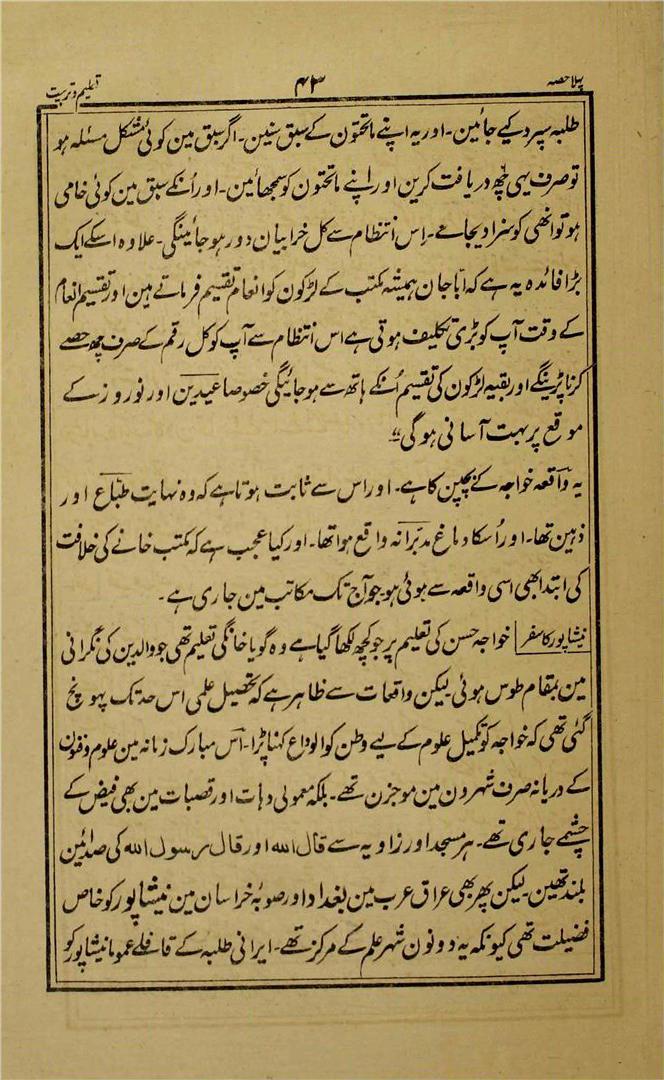 پہلا حصہ
۴۳
تعلیم و تربیت
طلبہ سپرد کیے جائین۔ اور یہ اپنے ماتحتون کے سبق سنین۔ اگر سبق مین کوئی مشکل مسئلہ ہو
تو صرف یہی چھ دریافت کرین اور اپنے ماتحتون کو سمجھائین۔ اور اُنکے سبق مین کوئی خامی
ہو تو انھی کو سزا دیجاے۔ اِس انتظام سے کل خرابیان دور ہو جائینگی۔ علاوہ اسکے ایک
بڑا فائدہ یہ ہے کہ ابا جان ہمیشہ مکتب کے لڑکون کو انعام تقسیم فرماتے ہین اور تقسیم انعام
کے وقت آپ کو بڑی تکلیف ہوتی ہے اس انتظام سے آپ کو کل رقم کے صرف چھ حصے
کرنا پڑینگے اور بقیہ لڑکون کی تقسیم اُنکے ہاتھ سے ہو جائیگی خصوصاً عیدین اور نوروز کے
موقع پر بہت آسانی ہوگی"
یہ واقعہ خواجہ کے بچپن کا ہے۔ اور اس سے ثابت ہوتا ہے کہ وہ نہایت طبّاع اور
ذہین تھا۔ اور اُسکا دماغ مدبّرانہ واقع ہوا تھا۔ اور کیا عجب ہے کہ مکتب خانے کی خلافت
کی ابتدا بھی اسی واقعہ سے ہوئی ہو جو آج تک مکاتب مین جاری ہے۔
نیشاپور کا سفر خواجہ حسن کی تعلیم پر جو کچھ لکھا گیا ہے وہ گویا خانگی تعلیم تھی جو والدین کی نگرانی
مین بمقام طوس ہوئی لیکن واقعات سے ظاہر ہے کہ تحصیل علمی اس حد تک پہونچ
گئی تھی کہ خواجہ کو تکمیل علوم کے لیے وطن کو الوداع کہنا پڑا۔ اُس مبارک زمانہ مین علوم و فنون
کے دریا نہ صرف شہرون مین موجزن تھے۔ بلکہ معمولی دہات اور قصبات مین بھی فیض کے
چشمے جاری تھے۔ ہر مسجد اور زاویہ سے قال اللہ اور قال رسول اللہ کی صدائین
بلند تھین لیکن پھر بھی عراق عرب مین بغداد اور صوبۂ خراسان مین نیشاپور کو خاص
فضیلت تھی کیونکہ یہ دونون شہر علم کے مرکز تھے۔ ایرانی طلبہ کے قافلے عموماً نیشاپور کو